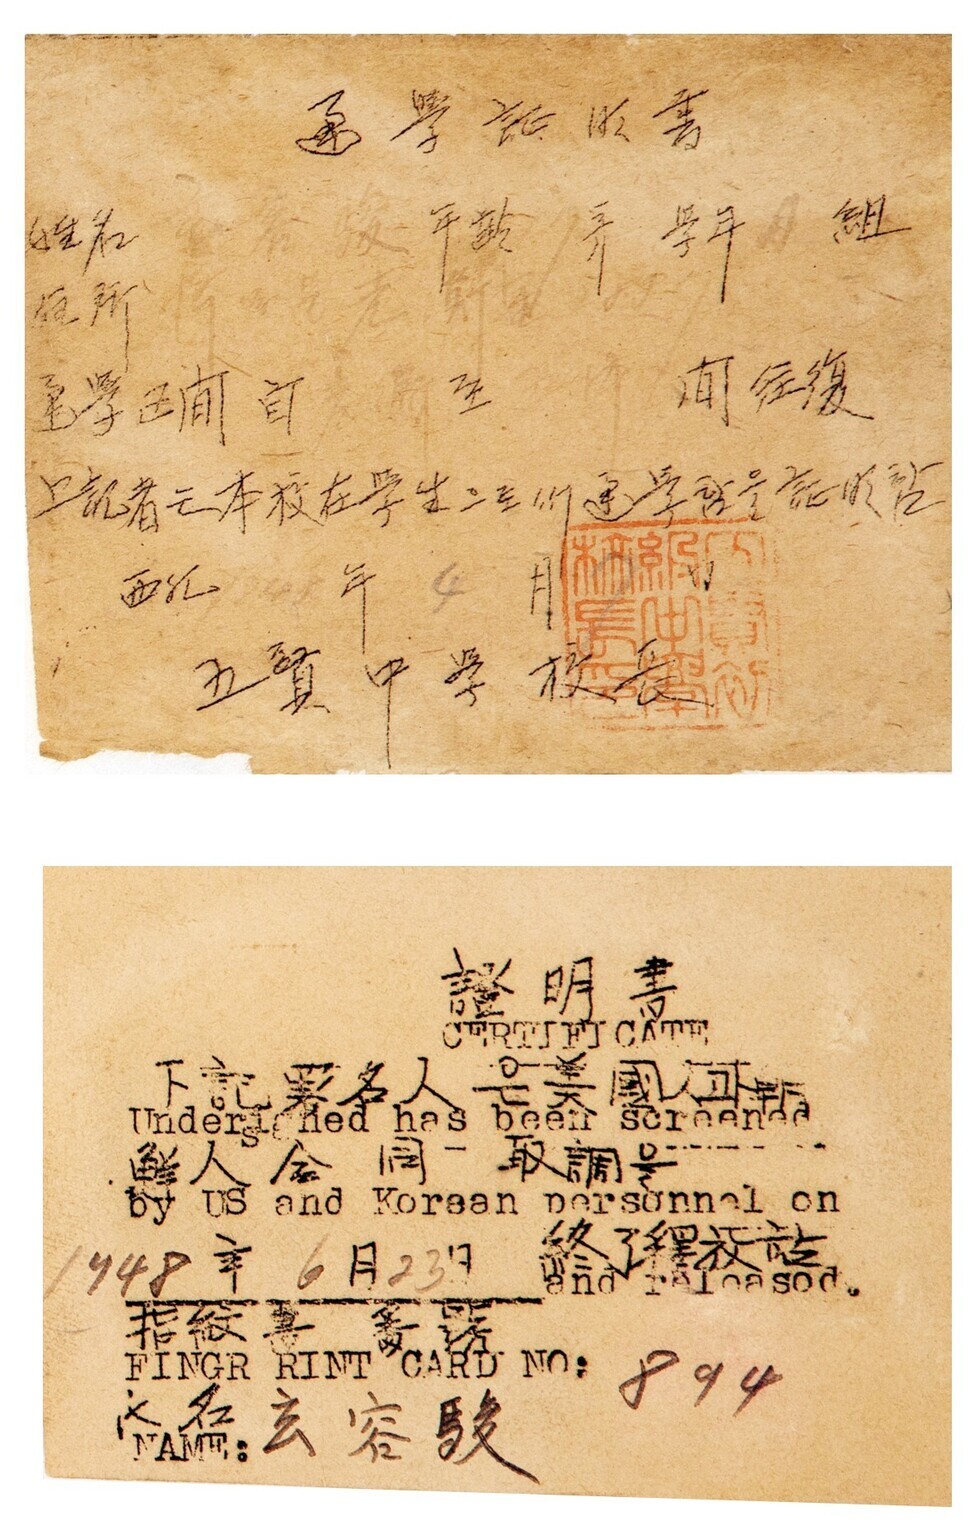 通學証明書
姓名 容駿 年齡 才 學年 組
住所
通學区間 自 至 間 往復
上記者는本校在學生으로써通學함을証明함
西紀 年 4 月 日
五賢中學校長
證明書
CERTIFICATE
下記署名人은美國人과朝
Undersigned has been screened
鮮人合同 取調를
by US and Korean personnel on
1948年 6月23日 終了釋放함
and released.
指紋票番號
FINGR RINT CARD NO: 894
氏名
NAME: 玄容駿